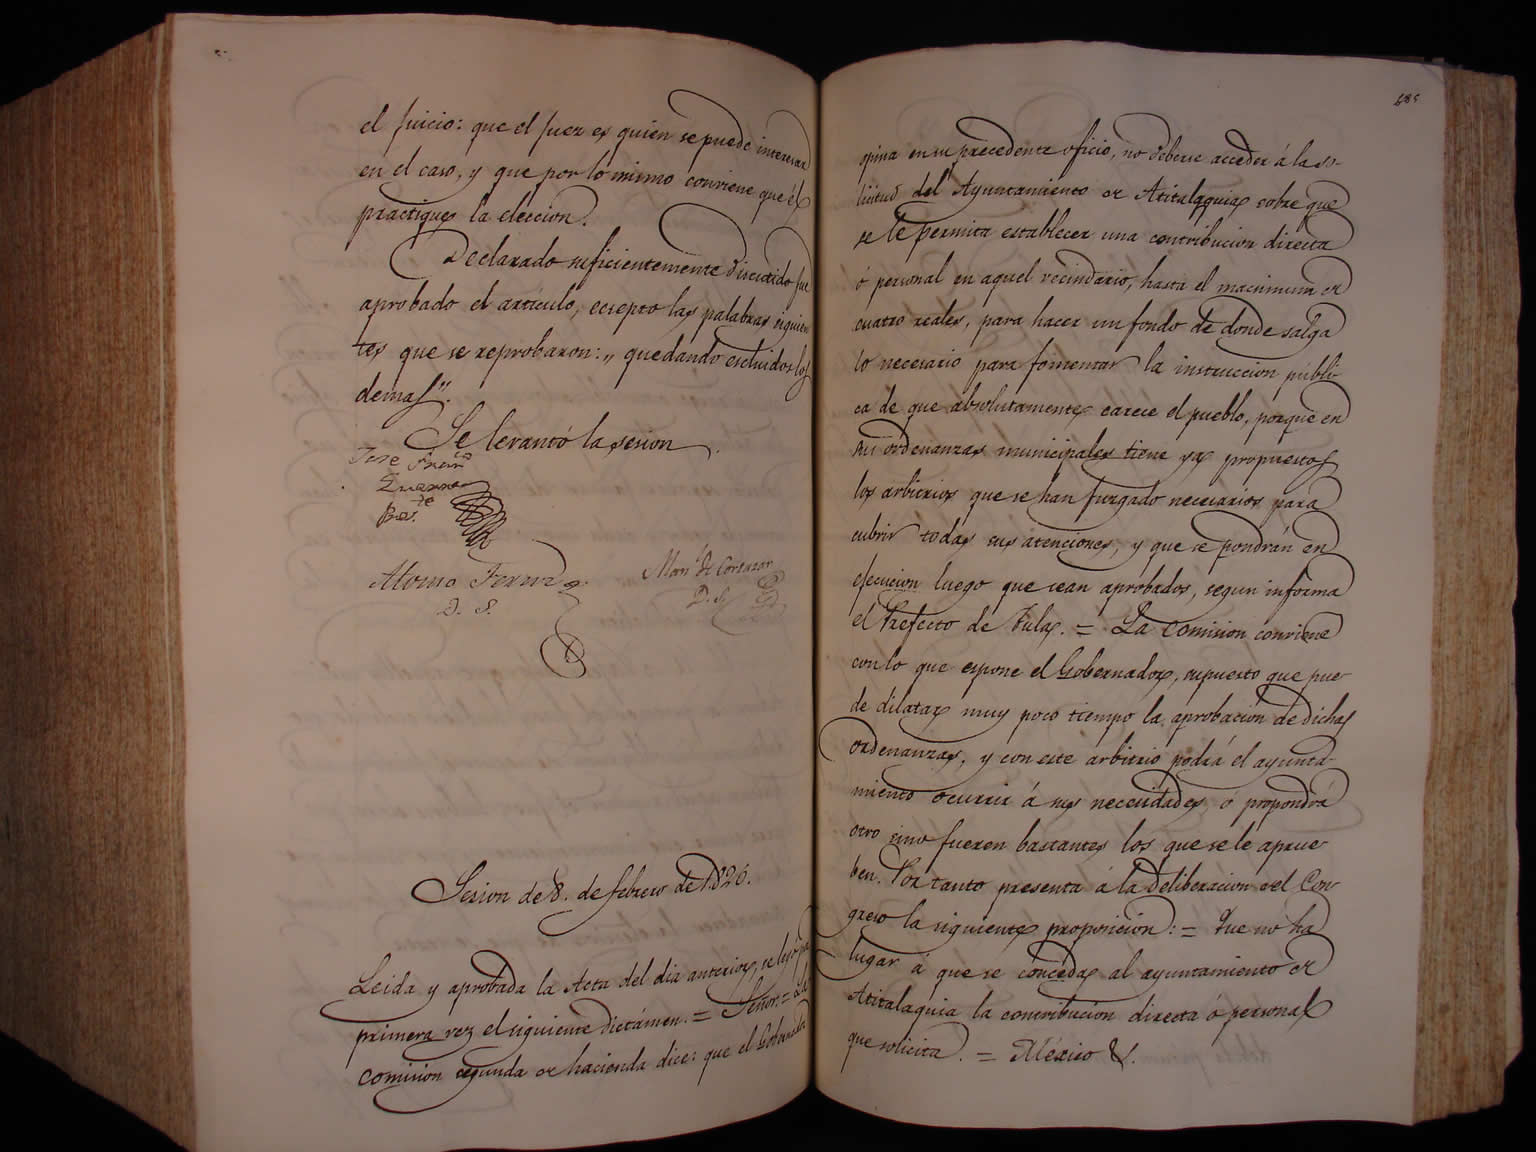 el juicio: que el juez es quien se puede interesar
en el caso, y que por lo mismo conviene que él
practique la eleccion.
Declarado suficientemente discutido fue
aprobado el artículo, ecsepto las palabras siguien
tes que se reprobaron: „ quedando escluidos los
demas”.
Se levantó la sesion.
Jose Fran.co
Guerra
Pres.te
Alonso Fernz
D. S.
Man. de Cortazar
D. S.
Sesion de 8. de febrero de 1826.
Leida y aprobada la Acta del dia anterior, se leyó pr.
primera vez el siguiente dictámen. = Señor. = La
comision segunda de hacienda dice: que el Gobernador
685
opina en su precedente oficio, no deberse acceder á la so-
licitud del Ayuntamiento de Atitalaquia sobre que
se le permita establecer una contribucion directa
ó personal en aquel vecindario, hasta el macsimum de
cuatro reales, para hacer un fondo de donde salga
lo necesario para fomentar la instruccion públi-
ca de que absolutamente carece el pueblo, porque en
sus ordenanzas municipales tiene ya propuestos
los arbitrios que se han juzgado necesarios para
cubrir todas sus atenciones, y que se pondrán en
ejecucion luego que sean aprobados, segun informa
el Prefecto de Tula. = La comision conviene
con lo que espone el Gobernador, supuesto que pue-
de dilatar muy poco tiempo la aprobacion de dichas
ordenanzas, y con este arbitrio podrá el ayunta-
miento ocurrir á sus necesidades, ó propondrá
otro sino fueren bastantes los que se le aprue-
ben. Por tanto presenta á la deliberacion del Con-
greso la siguiente proposicion: = Que no ha
lugar á que se conceda al ayuntamiento de
Atitalaquia la contribucion directa ó personal
que solicita. = México &.